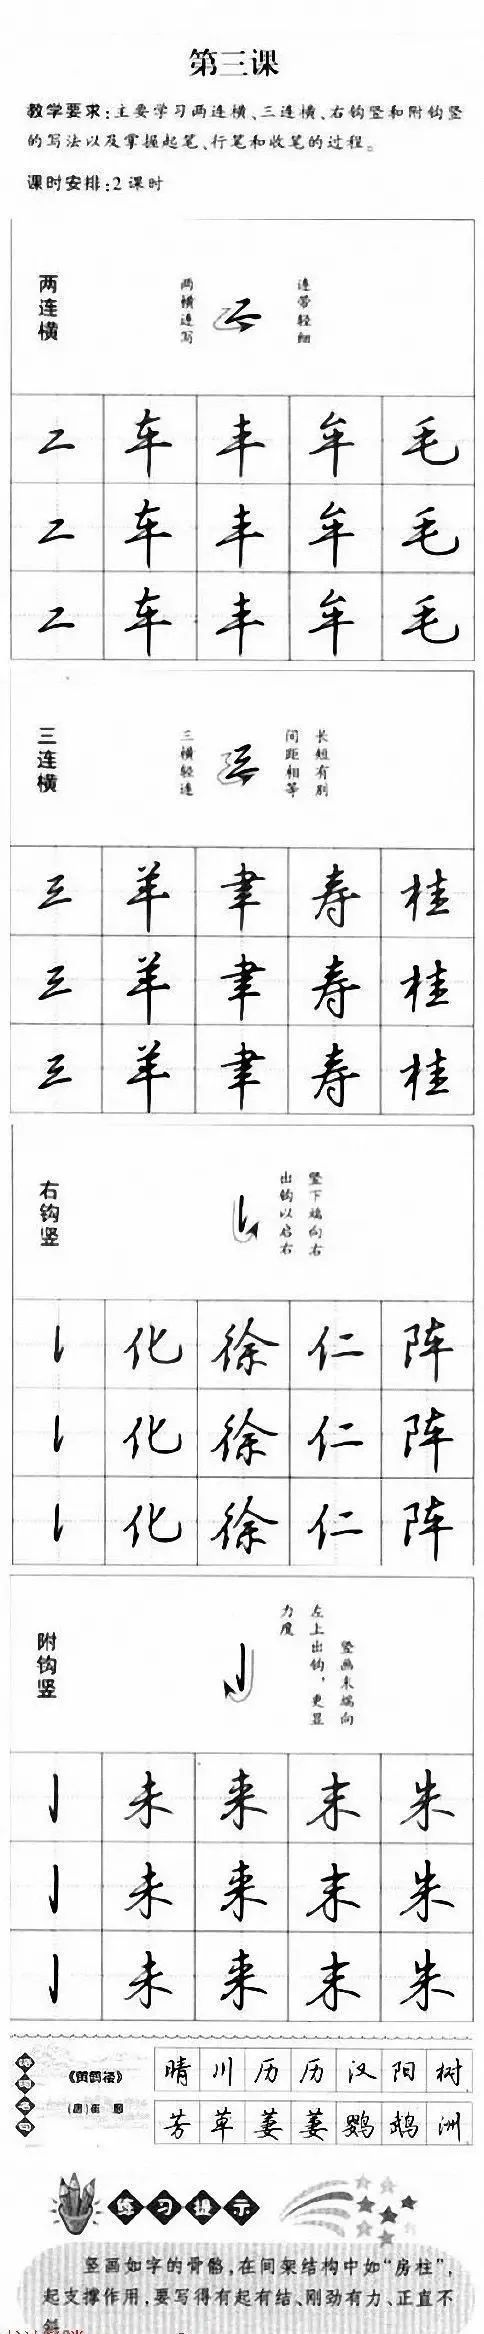 第三课
教学要求:主要学习两连横、三连横、右钩竖和附钩竖
的写法以及掌握起笔、行笔和收笔的过程。
课时安排:2课时
两连横
两横连写
连带轻细
二 车 丰 年 毛
二 车 丰 年 毛
二 车 丰 年 毛
三连横
三横轻连
长短有别
间距相等
三 羊 聿 寿 桂
三 羊 聿 寿 桂
三 羊 聿 寿 桂
右钩竖
竖下端向右
出钩以启右
化 徐 仁 阵
化 徐 仁 阵
化 徐 仁 阵
附钩竖
竖画末端向
左上出钩,更显
力度
未 来 末 朱
未 来 末 朱
未 来 末 朱
《黄鹤楼》
(唐)崔颢
晴川历历汉阳树
芳草萋萋鹦鹉洲
练习提示
竖画如字的骨骼,在间架结构中如“房柱”,
起支撑作用,要写得有起有结、刚劲有力、正直不